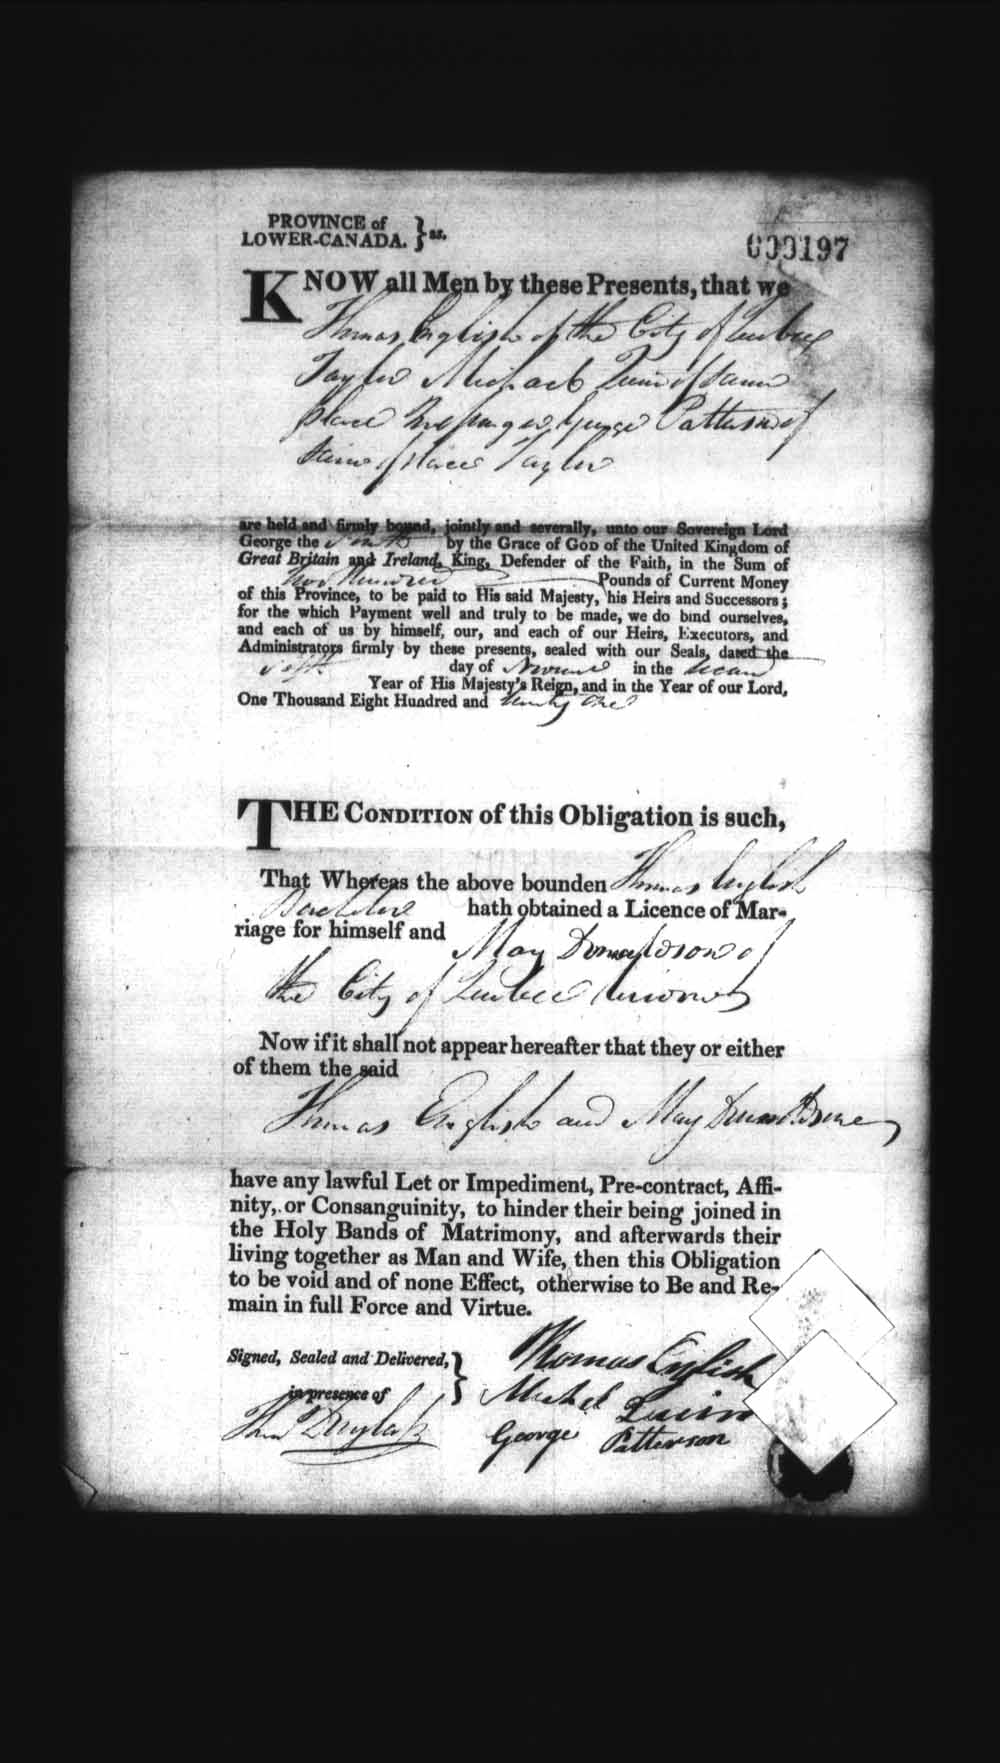 PROVINCE of
LOWER-CANADA. } ss.
000197
KNOW all Men by these Presents, that we
Thomas English of the City of Quebec
Taylor Michael Quinn of same
place George Patterson of
Same place Taylor
are held and firmly bound, jointly and severally, unto our Sovereign Lord
George the Fourth by the Grace of GOD of the United Kingdom of
Great Britain and Ireland, King, Defender of the Faith, in the Sum of
two Hundred Pounds of Current Money
of this Province, to be paid to His said Majesty, his Heirs and Successors;
for the which Payment well and truly to be made, we do bind ourselves,
and each of us by himself, our, and each of our Heirs, Executors, and
Administrators firmly by these presents, sealed with our Seals, dated the
day of in the second
Year of His Majesty's Reign, and in the Year of our Lord,
One Thousand Eight Hundred and twenty one
THE CONDITION of this Obligation is such,
That Whereas the above bounden Thomas English
Bachelor hath obtained a Licence of Mar-
riage for himself and
May Donaldson of
the City of Quebec
Now if it shall not appear hereafter that they or either
of them the said
Thomas English and May
have any lawful Let or Impediment, Pre-contract, Affi-
nity, or Consanguinity, to hinder their being joined in
the Holy Bands of Matrimony, and afterwards their
living together as Man and Wife, then this Obligation
to be void and of none Effect, otherwise to Be and Re-
main in full Force and Virtue.
Signed, Sealed and Delivered, }
in presence of
Thomas English
Michel Quinn
George Patterson